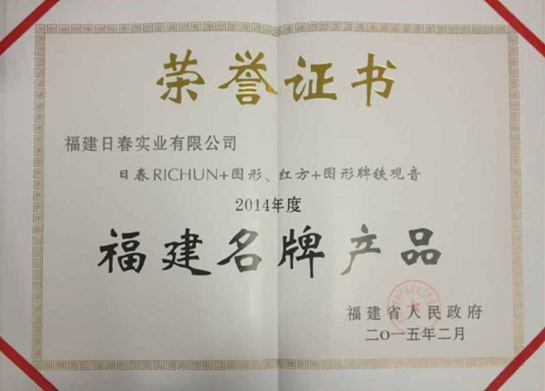 荣誉证书
福建日春实业有限公司
日春RICHUN+图形、红方+图形牌铁观音
2014年度
福建名牌产品
福建省人民政府
二〇一五年二月